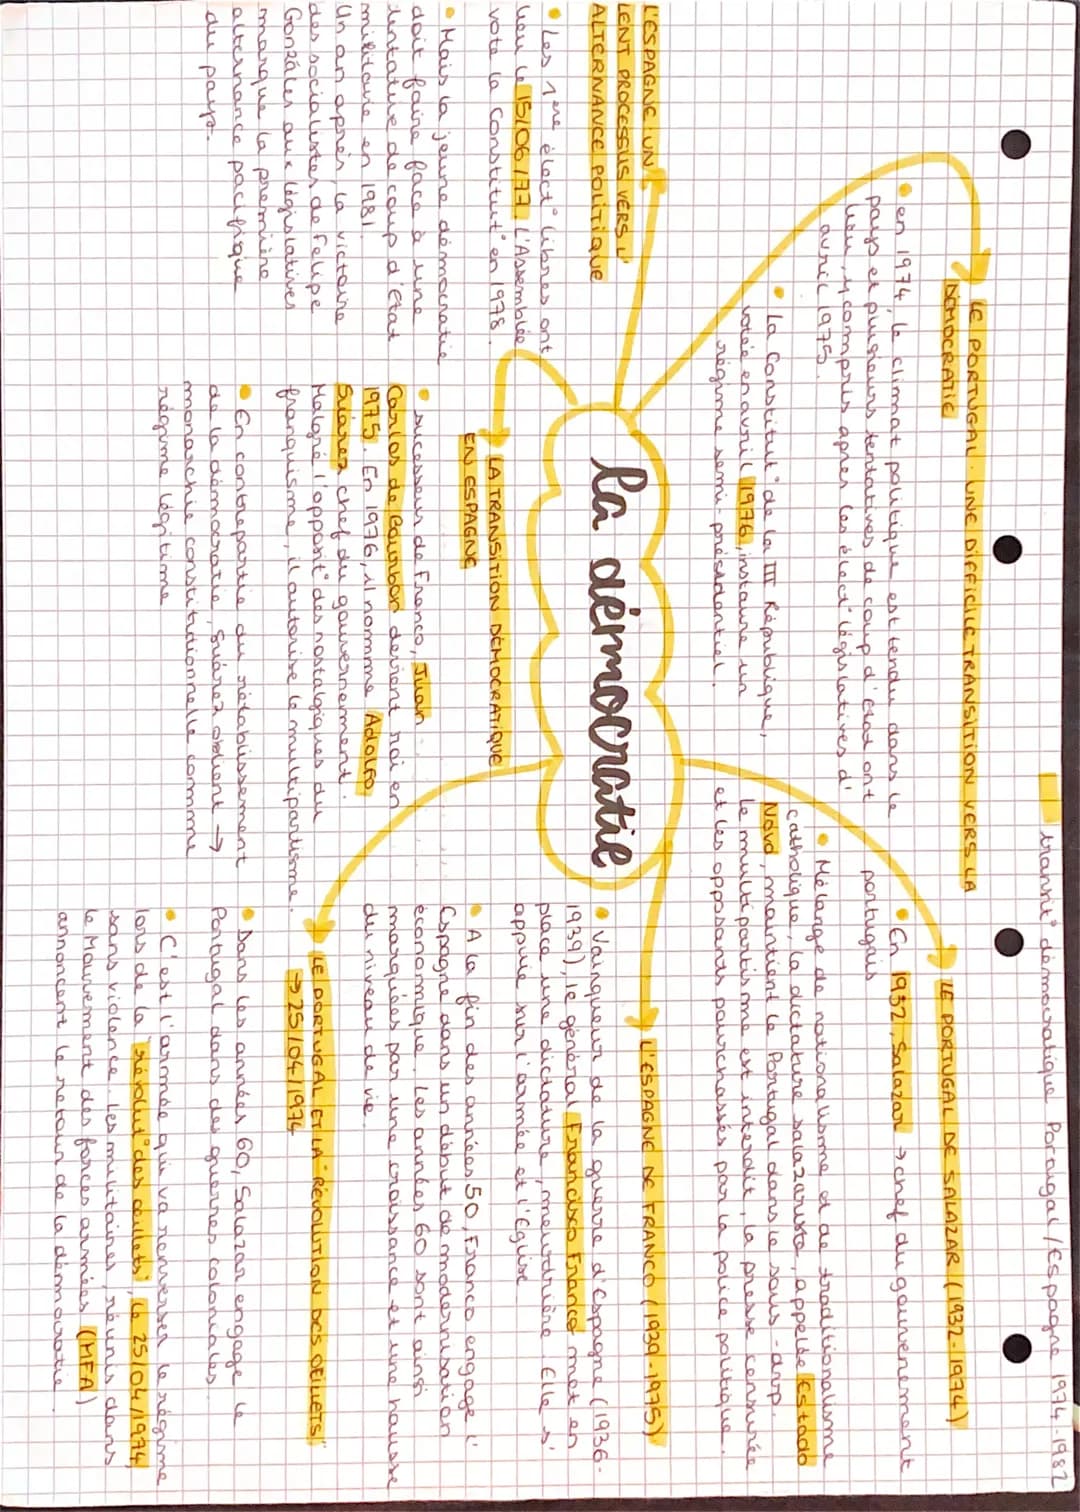 transit° démocratique Portugal/Espagne 1974-1982
LE PORTUGAL : UNE DIFFICILE TRANSITION VERS LA
DÉMOCRATIE
• en 1974, le climat politique est tendu dans le
pays et plusieurs tentatives de coup d'état ont
lieu, y compris après les élect° législatives d'
avril 1975.
• La Constitut° de la III République,
votée en avril 1976, instaure un
régime semi-présidentiel.
LE PORTUGAL DE SALAZAR (1932-1974)
• En 1932, Salazar → chef du gouvernement
portugais
• Mélange de nationalisme et de traditionalisme
catholique, la dictature salazariste, appelée Estado
Novo, maintient le Portugal dans le sous-dvp.
le multipartisme est interdit, la presse censurée
et les opposants pourchassés par la police politique.
L'ESPAGNE : UN
LENT PROCESSUS VERS L'
ALTERNANCE POLITIQUE
• Les 1ère élect° libres ont
lieu le 15/06/77. L'Assemblée
vote la Constitut° en 1978.
• Mais la jeune démocratie
doit faire face à une
tentative de coup d'Etat
militaire en 1981.
Un an après, la victoire
des socialistes de Felipe
Gonzáles aux législatives
marque la première
alternance pacifique
du pays.
la démocratie
LA TRANSITION DÉMOCRATIQUE
EN ESPAGNE
• successeur de Franco, Juan
Carlos de Bourbon devient roi en
1975. En 1976, il nomme Adolfo
Suárez chef du gouvernement.
Malgré l'opposit° des nostalgiques du
franquisme, il autorise le multipartisme.
• En contrepartie du rétablissement
de la démocratie, Suárez obtient →
monarchie constitutionnelle comme
régime légitime
L'ESPAGNE DE FRANCO (1939-1975)
• Vainqueur de la guerre d'Espagne (1936-
1939), le général Francisco Franco met en
place une dictature, meurtrière. Elle s'
appuie sur l'armée et l'Eglise.
• A la fin des années 50, Franco engage l'
Espagne dans un début de modernisation
économique. Les années 60 sont ainsi
marquées par une croissance et une hausse
du niveau de vie.
LE PORTUGAL ET LA "RÉVOLUTION DES OEILLETS"
→ 25/04/1974
• Dans les années 60, Salazar engage le
Portugal dans des guerres coloniales.
• C'est l'armée qui va renverser le régime
lors de la "révolut° des oeillets", le 25/04/1974,
sans violence. Les militaires, réunis dans
le Mouvement des forces armées (MFA)
annoncent le retour de la démocratie.